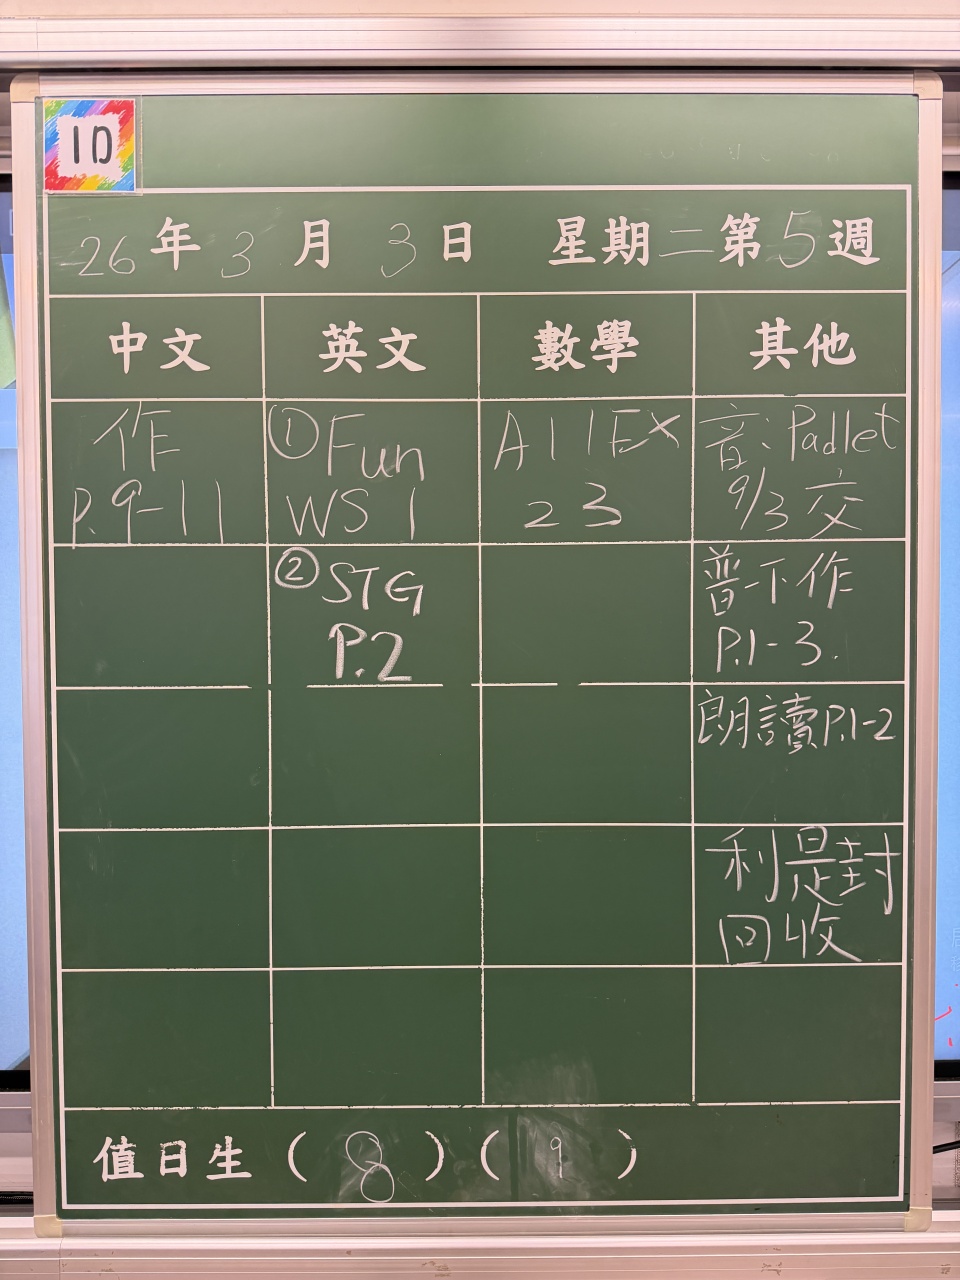 1D
26年3月3日 星期二第5週
中文 英文 數學 其他
作
P.9-11
①Fun
WS 1
A11EX
23
音:Padlet
9/3交
②STG
P.2
普一下作
P.1-3.
朗讀P.1-2
利是封
回收
值日生(8)(9)